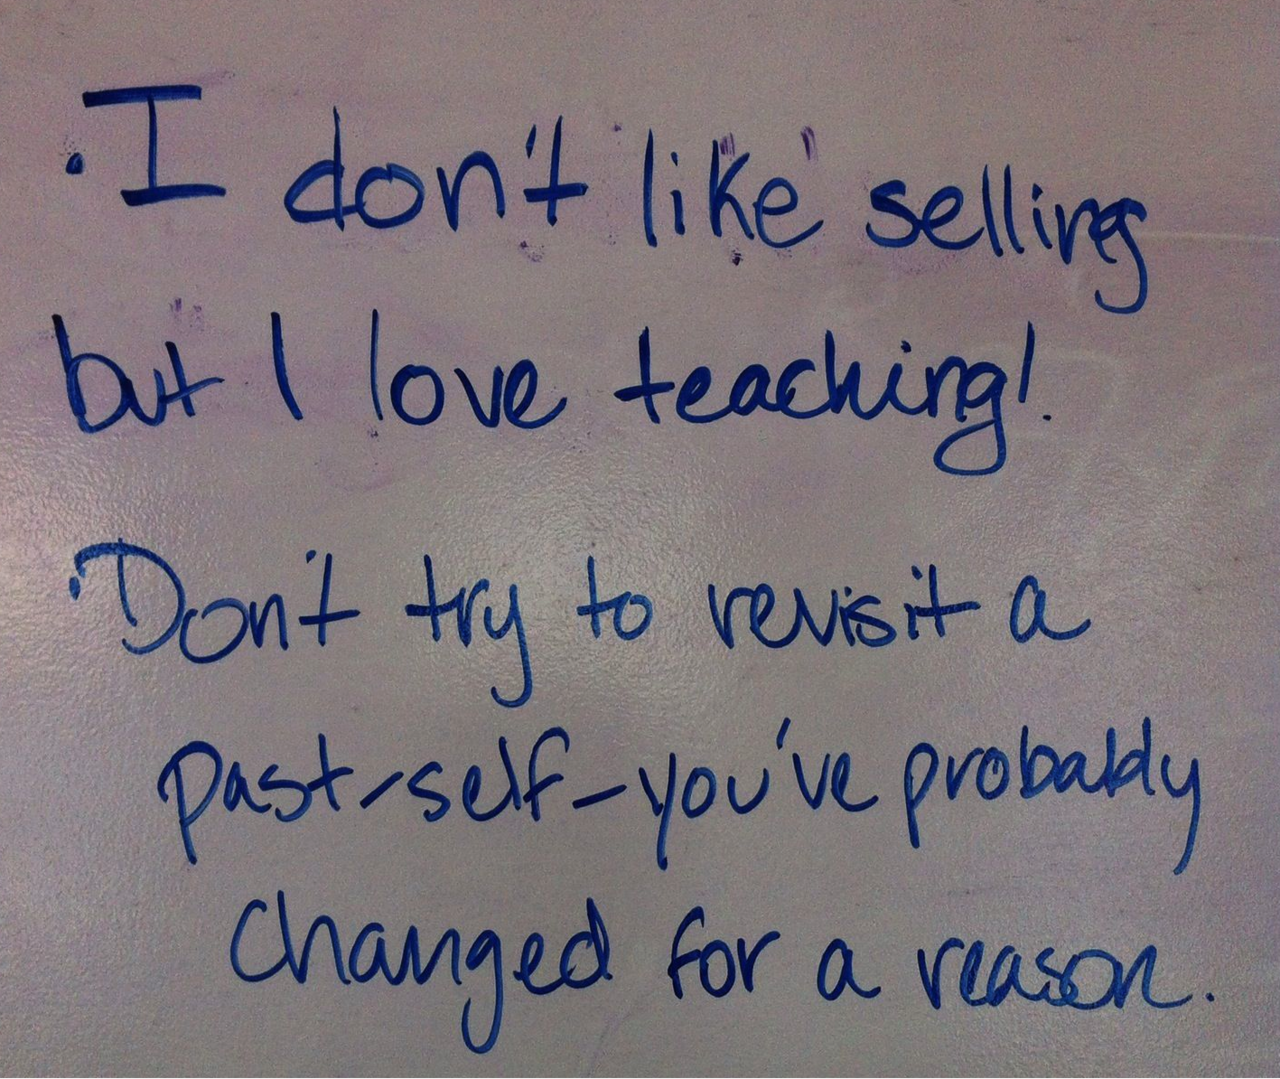 • I don't like selling
but I love teaching!
• Don't try to revisit a
past-self-you've probably
changed for a reason.